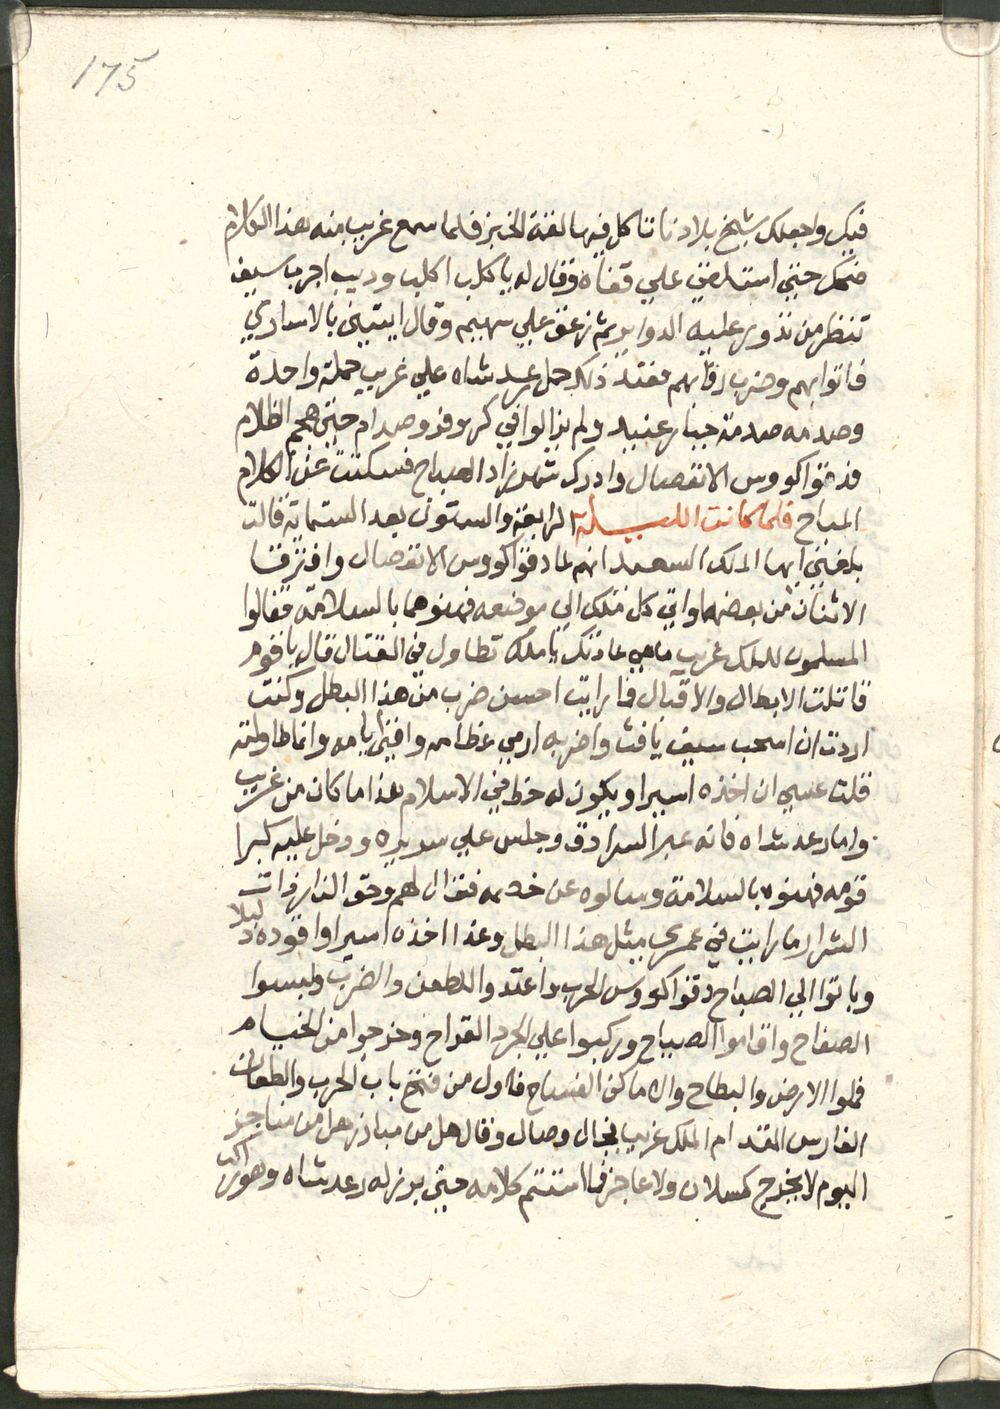 175
فيك واجعلك شيخ بلادنا تاكل فيها لقمة الخبز فلما سمع غريب منه هذا الكلام
ضحك حتي استلقي علي قفاه وقال له يا كلب اكلب وديب اجرب سوف
تنظر من تدور عليه الدواير ثم زعق علي سهيم وقال ايتيني بالاساري
فاتوا بهم وضرب رقابهم فعند ذلك حمل رعد شاه علي غريب حملة واحدة
وصدمه صدمة جبار عنيد ولم يزالوا في كر وفر وصدام حتي هجم الظلام
فدقوا كووس الانفصال وادرك شهرزاد الصباح فسكتت عن الكلام
المباح فلما كانت الليلة الرابعة والستون بعد الستماية قالت
بلغني ايها الملك السعيد انهم لما دقوا كووس الانفصال وافترقا
الاثنان من بعضهما واتي كل ملك الي موضعه فهنوهما بالسلامة فقالوا
المسلمون للملك غريب ماهي عادتك يا ملك تطاول في القتال قال يا قوم
قاتلت الابطال والاقيال فما رايت احسن ضرب من هذا البطل وكنت
اردت ان اسحب سيف يافث واضربه ارمي عظامه وافني ايامه وانا طاولته
قلت عسي ان اخذه اسيرا ويكون له حظ في الاسلام هذا ما كان من غريب
واما رعد شاه فانه عبر السرادق وجلس علي سريره ودخل عليه كبرا
قومه فهنوه بالسلامة وسالوه عن خصمه فقال لهم وحق النار ذات
الشرار ما رايت في عمري مثل هذا البطل وغدا اخذه اسيرا واقوده ذليلا
وباتوا الي الصباح دقوا كووس الحرب واعتدوا للطعن والضرب ولبسوا
الصفاح واقاموا الصياح وركبوا علي الجرد القداح وخرجوا من الخيام
فملوا الارض والبطاح والاماكن الفساح فاول من فتح باب الحرب والطعان
الفارس المقدام الملك غريب فجال وصال وقال هل من مبارز هل من مناجز
اليوم لا يخرج كسلان ولا عاجز فما استتم كلامه حتي برز له رعد شاه وهو راكب